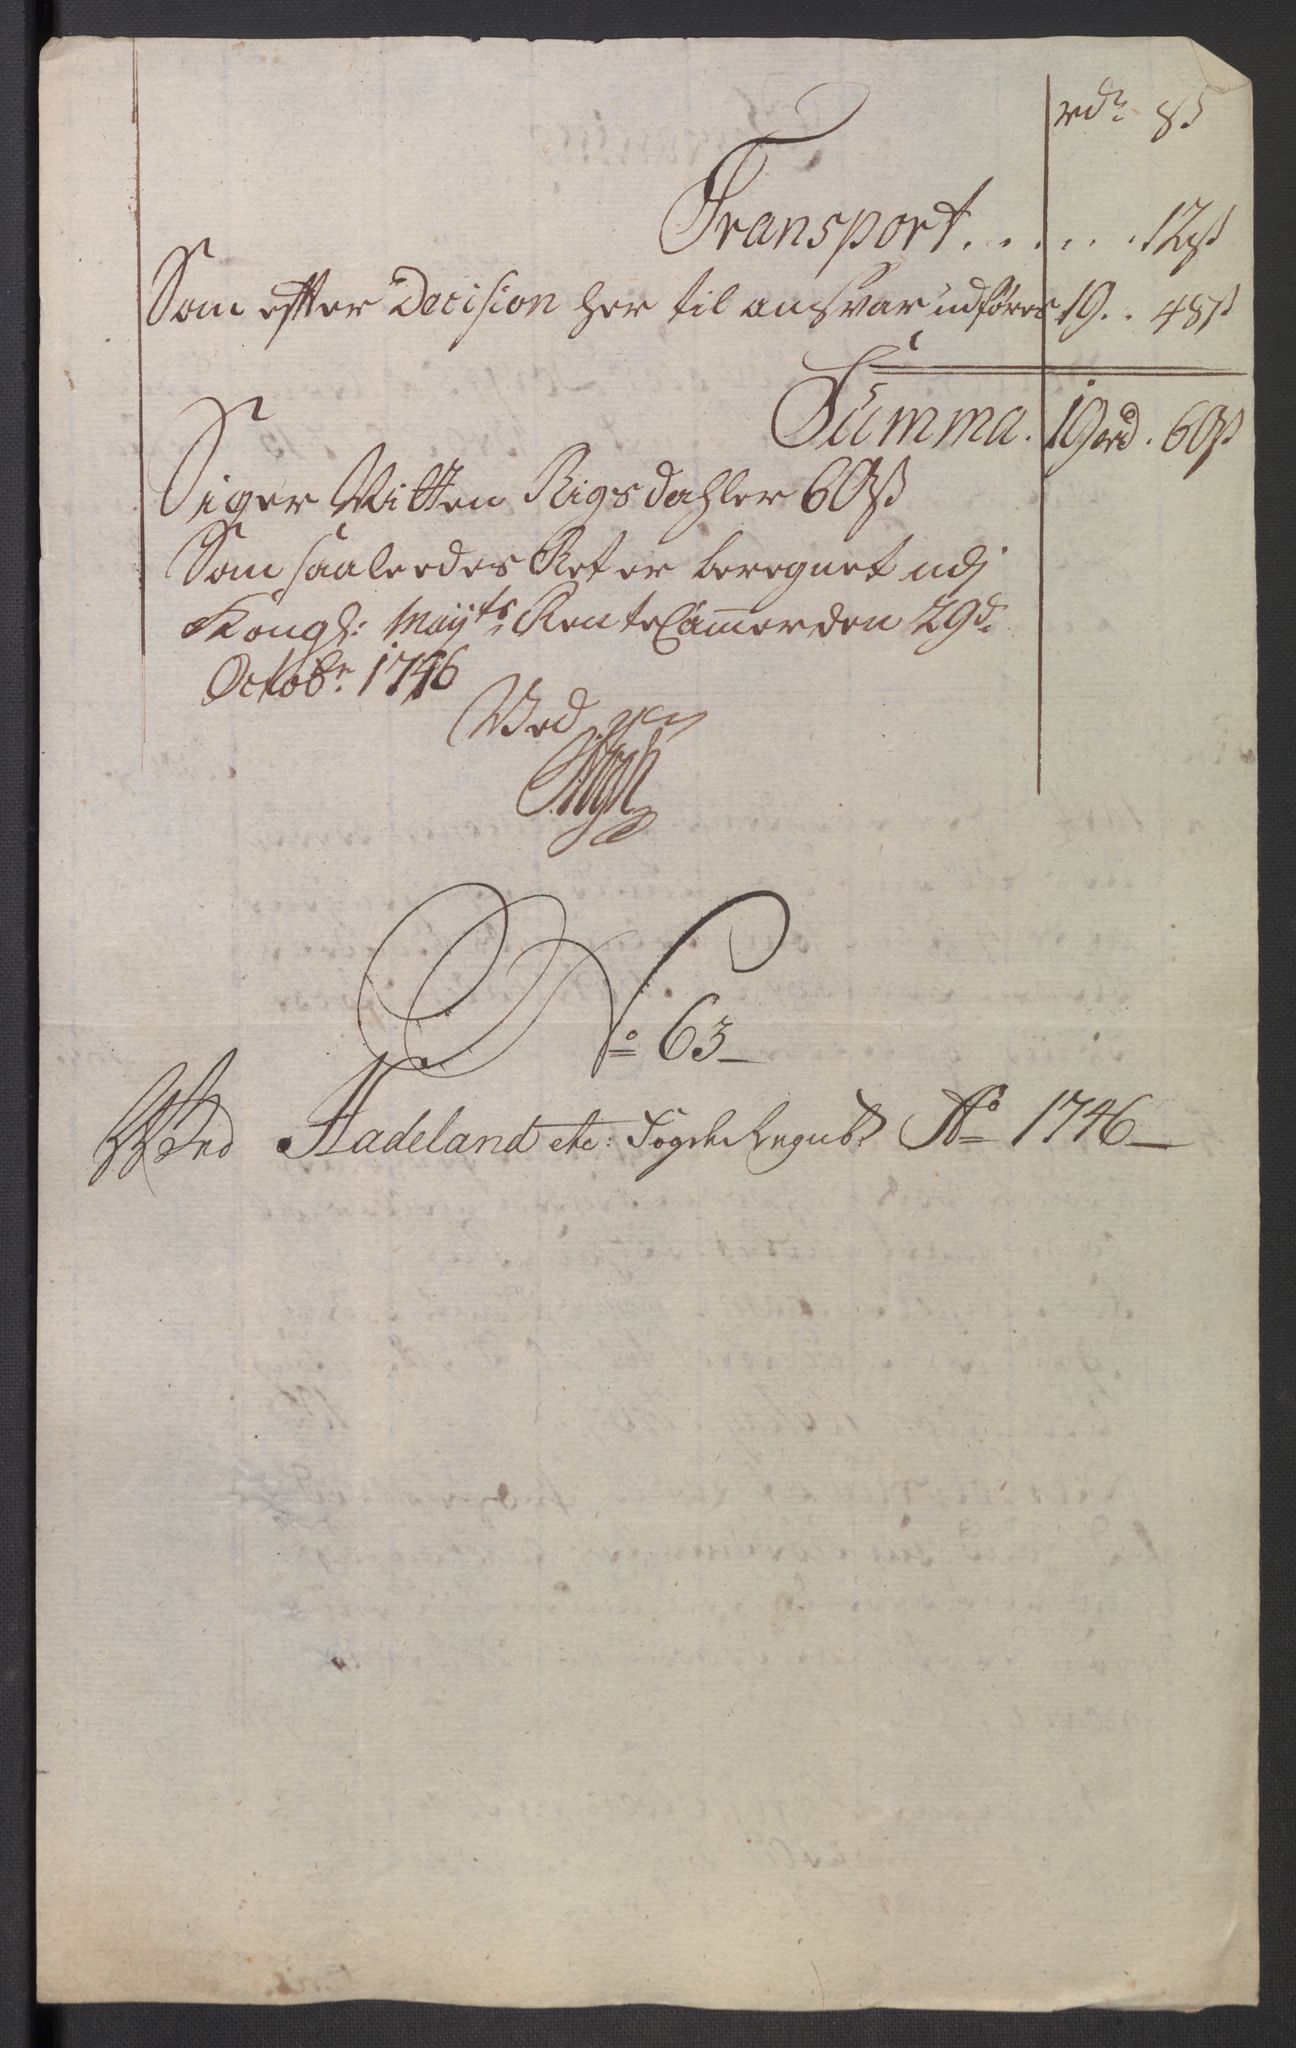 rdr ß
Transport . . . . . . 12ß
Som efter Decision her til ansvar udføres 19 . . 48ß
Summa . 19 rd . 60ß
Siger Nitten Rigsdahler 60ß
Som saaledes Ret er beregnet udj
Kongl: Mayts Rente Cammer den 29d
Octobr. 1746
Ved
No 63
Ved Hadeland etc: Fogderegnsk: Ao 1746